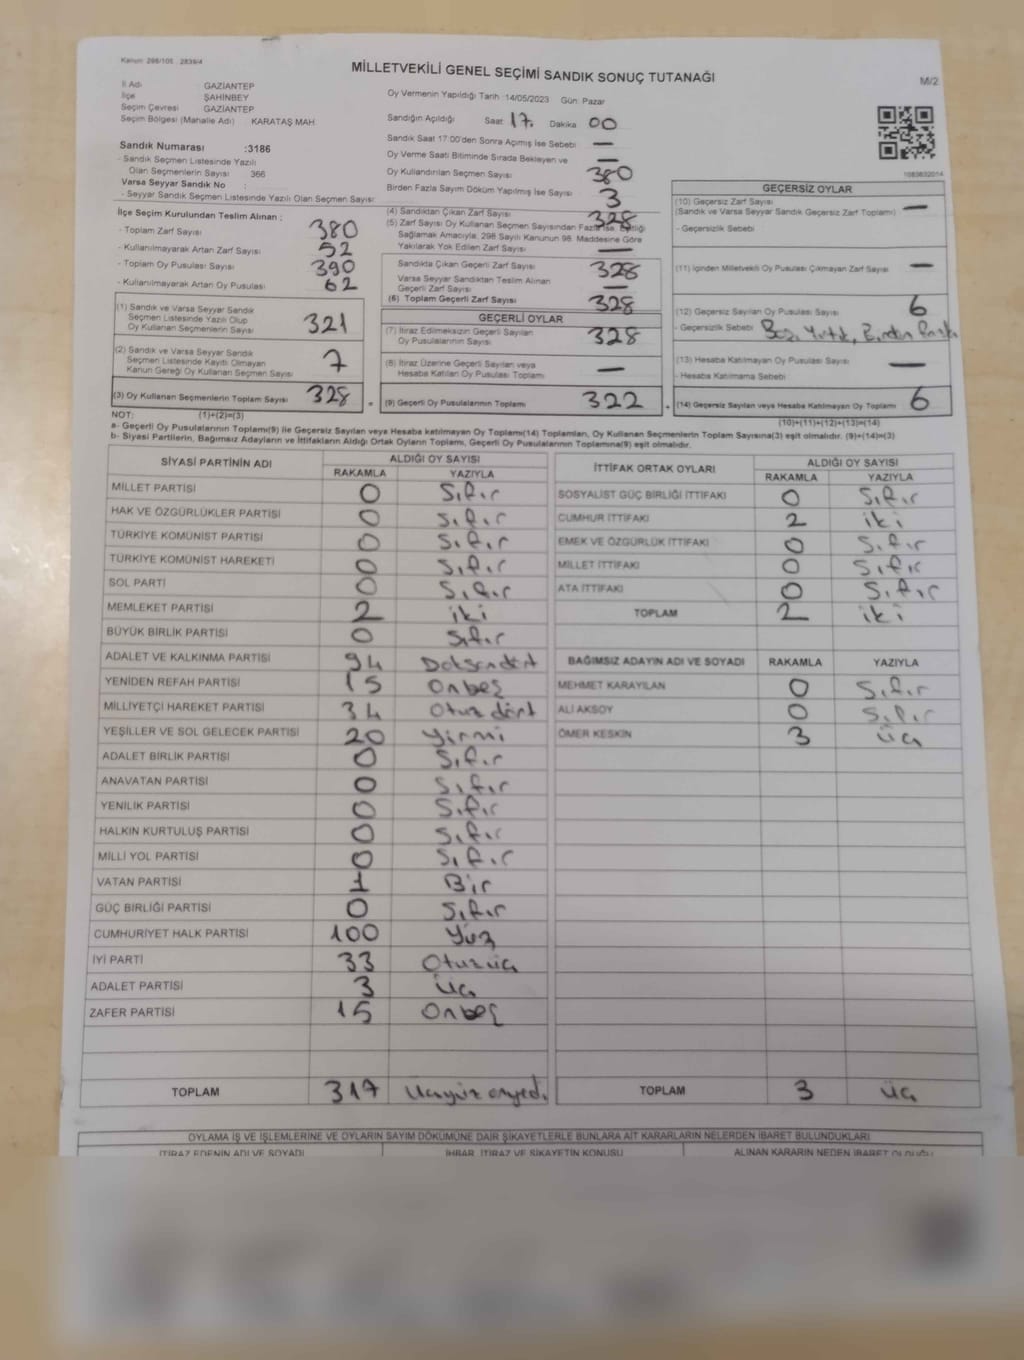 Kanun: 298/105 , 2839/4
MİLLETVEKİLİ GENEL SEÇİMİ SANDIK SONUÇ TUTANAĞI
M/2
İl Adı : GAZİANTEP
İlçe : ŞAHİNBEY
Seçim Çevresi : GAZİANTEP
Seçim Bölgesi (Mahalle Adı) : KARATAŞ MAH.
Oy Vermenin Yapıldığı Tarih :14/05/2023 Gün: Pazar
Sandığın Açıldığı Saat 17. Dakika 00
Sandık Saat 17:00'den Sonra Açılmış İse Sebebi —
Oy Verme Saati Bitiminde Sırada Bekleyen ve —
Oy Kullandırılan Seçmen Sayısı 380
Birden Fazla Sayım Döküm Yapılmış İse Sayısı 3
Sandık Numarası :3186
- Sandık Seçmen Listesinde Yazılı
Olan Seçmenlerin Sayısı : 366
Varsa Seyyar Sandık No :
- Seyyar Sandık Seçmen Listesinde Yazılı Olan Seçmen Sayısı:
1083632014
İlçe Seçim Kurulundan Teslim Alınan :
- Toplam Zarf Sayısı : 380
- Kullanılmayarak Artan Zarf Sayısı : 52
- Toplam Oy Pusulası Sayısı : 390
- Kullanılmayarak Artan Oy Pusulası : 62
(1) Sandık ve Varsa Seyyar Sandık
Seçmen Listesinde Yazılı Olup
Oy Kullanan Seçmenlerin Sayısı 321
(2) Sandık ve Varsa Seyyar Sandık
Seçmen Listesinde Kayıtlı Olmayan
Kanun Gereği Oy Kullanan Seçmen Sayısı 7
(3) Oy Kullanan Seçmenlerin Toplam Sayısı 328
(4) Sandıktan Çıkan Zarf Sayısı 328
(5) Zarf Sayısı Oy Kullanan Seçmen Sayısından Fazla İse, Eşitliği
Sağlamak Amacıyla, 298 Sayılı Kanunun 98. Maddesine Göre
Yakılarak Yok Edilen Zarf Sayısı —
Sandıkta Çıkan Geçerli Zarf Sayısı 328
Varsa Seyyar Sandıktan Teslim Alınan
Geçerli Zarf Sayısı —
(6) Toplam Geçerli Zarf Sayısı 328
GEÇERLİ OYLAR
(7) İtiraz Edilmeksizin Geçerli Sayılan
Oy Pusulalarının Sayısı 328
(8) İtiraz Üzerine Geçerli Sayılan veya
Hesaba Katılan Oy Pusulası Toplamı —
(9) Geçerli Oy Pusulalarının Toplamı 322
GEÇERSİZ OYLAR
(10) Geçersiz Zarf Sayısı
(Sandık ve Varsa Seyyar Sandık Geçersiz Zarf Toplamı) —
- Geçersizlik Sebebi
(11) İçinden Milletvekili Oy Pusulası Çıkmayan Zarf Sayısı —
(12) Geçersiz Sayılan Oy Pusulası Sayısı 6
- Geçersizlik Sebebi
(13) Hesaba Katılmayan Oy Pusulası Sayısı —
- Hesaba Katılmama Sebebi
(14) Geçersiz Sayılan veya Hesaba Katılmayan Oy Toplamı 6
NOT: (1)+(2)=(3)
(10)+(11)+(12)+(13)=(14)
a- Geçerli Oy Pusulalarının Toplamı(9) ile Geçersiz Sayılan veya Hesaba katılmayan Oy Toplamı(14) Toplamları, Oy Kullanan Seçmenlerin Toplam Sayısına(3) eşit olmalıdır. (9)+(14)=(3)
b- Siyasi Partilerin, Bağımsız Adayların ve İttifakların Aldığı Ortak Oyların Toplamı, Geçerli Oy Pusulalarının Toplamına(9) eşit olmalıdır.
SİYASİ PARTİNİN ADI
ALDIĞI OY SAYISI
RAKAMLA YAZIYLA
MİLLET PARTİSİ 0 Sıfır
HAK VE ÖZGÜRLÜKLER PARTİSİ 0 Sıfır
TÜRKİYE KOMÜNİST PARTİSİ 0 Sıfır
TÜRKİYE KOMÜNİST HAREKETİ 0 Sıfır
SOL PARTİ 0 Sıfır
MEMLEKET PARTİSİ 2 iki
BÜYÜK BİRLİK PARTİSİ 0 Sıfır
ADALET VE KALKINMA PARTİSİ 94 Doksandört
YENİDEN REFAH PARTİSİ 15 Onbeş
MİLLİYETÇİ HAREKET PARTİSİ 34 Otuz dört
YEŞİLLER VE SOL GELECEK PARTİSİ 20 Yirmi
ADALET BİRLİK PARTİSİ 0 Sıfır
ANAVATAN PARTİSİ 0 Sıfır
YENİLİK PARTİSİ 0 Sıfır
HALKIN KURTULUŞ PARTİSİ 0 Sıfır
MİLLİ YOL PARTİSİ 0 Sıfır
VATAN PARTİSİ 1 Bir
GÜÇ BİRLİĞİ PARTİSİ 0 Sıfır
CUMHURİYET HALK PARTİSİ 100 Yüz
İYİ PARTİ 33 Otuzüç
ADALET PARTİSİ 3 üç
ZAFER PARTİSİ 15 Onbeş
TOPLAM 317 üçyüz onyedi
İTTİFAK ORTAK OYLARI
ALDIĞI OY SAYISI
RAKAMLA YAZIYLA
SOSYALİST GÜÇ BİRLİĞİ İTTİFAKI 0 Sıfır
CUMHUR İTTİFAKI 2 iki
EMEK VE ÖZGÜRLÜK İTTİFAKI 0 Sıfır
MİLLET İTTİFAKI 0 Sıfır
ATA İTTİFAKI 0 Sıfır
TOPLAM 2 iki
BAĞIMSIZ ADAYIN ADI VE SOYADI RAKAMLA YAZIYLA
MEHMET KARAYILAN 0 Sıfır
ALİ AKSOY 0 Sıfır
ÖMER KESKİN 3 üç
TOPLAM 3 üç
OYLAMA İŞ VE İŞLEMLERİNE VE OYLARIN SAYIM DÖKÜMÜNE DAİR ŞİKAYETLERLE BUNLARA AİT KARARLARIN NELERDEN İBARET BULUNDUKLARI
İTİRAZ EDENİN ADI VE SOYADI İHBAR, İTİRAZ VE ŞİKAYETİN KONUSU ALINAN KARARIN NEDEN İBARET OLDUĞU